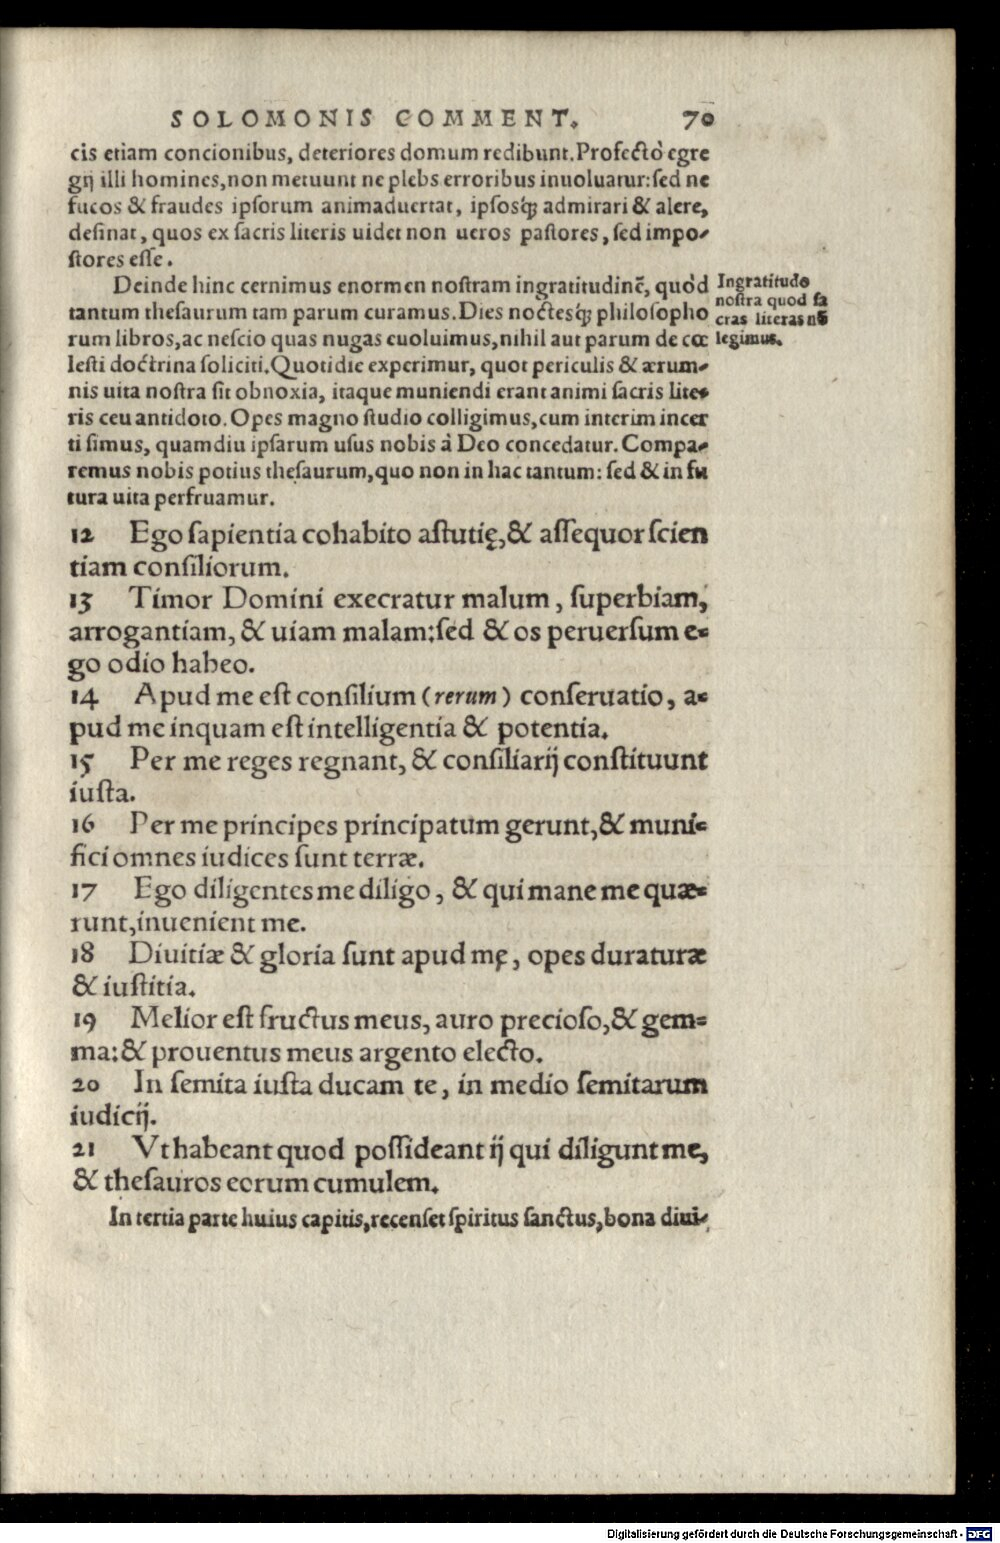 SOLOMONIS COMMENT. 70
cis etiam concionibus, deteriores domum redibunt. Profectò egre
gij illi homines, non metuunt ne plebs erroribus inuoluatur: sed ne
fucos & fraudes ipsorum animaduertat, ipsosq́; admirari & alere,
desinat, quos ex sacris literis uidet non ueros pastores, sed impo-
stores esse.
Deinde hinc cernimus enormen nostram ingratitudinẽ, quòd
tantum thesaurum tam parum curamus. Dies noctesq́; philosopho
rum libros, ac nescio quas nugas euoluimus, nihil aut parum de cœ
lesti doctrina soliciti. Quotidie experimur, quot periculis & ærum-
nis uita nostra sit obnoxia, itaque muniendi erant animi sacris lite-
ris ceu antidoto. Opes magno studio colligimus, cum interim incer
ti simus, quamdiu ipsarum usus nobis à Deo concedatur. Compa-
remus nobis potius thesaurum, quo non in hac tantum: sed & in fu
tura uita perfruamur.
Ingratitudo
nostra quod sa
cras literas nõ
legimus.
12 Ego sapientia cohabito astutię, & assequor scien
tiam consiliorum.
13 Timor Domini execratur malum, superbiam,
arrogantiam, & uiam malam: sed & os peruersum e-
go odio habeo.
14 Apud me est consilium (rerum) conseruatio, a-
pud me inquam est intelligentia & potentia.
15 Per me reges regnant, & consiliarij constituunt
iusta.
16 Per me principes principatum gerunt, & muni-
fici omnes iudices sunt terræ.
17 Ego diligentes me diligo, & qui mane me quæ-
runt, inuenient me.
18 Diuitiæ & gloria sunt apud mę, opes duraturæ
& iustitia.
19 Melior est fructus meus, auro precioso, & gem-
ma: & prouentus meus argento electo.
20 In semita iusta ducam te, in medio semitarum
iudicij.
21 Vt habeant quod possideant ij qui diligunt me,
& thesauros eorum cumulem.
In tertia parte huius capitis, recenset spiritus sanctus, bona diui-
Digitalisierung gefördert durch die Deutsche Forschungsgemeinschaft - DFG